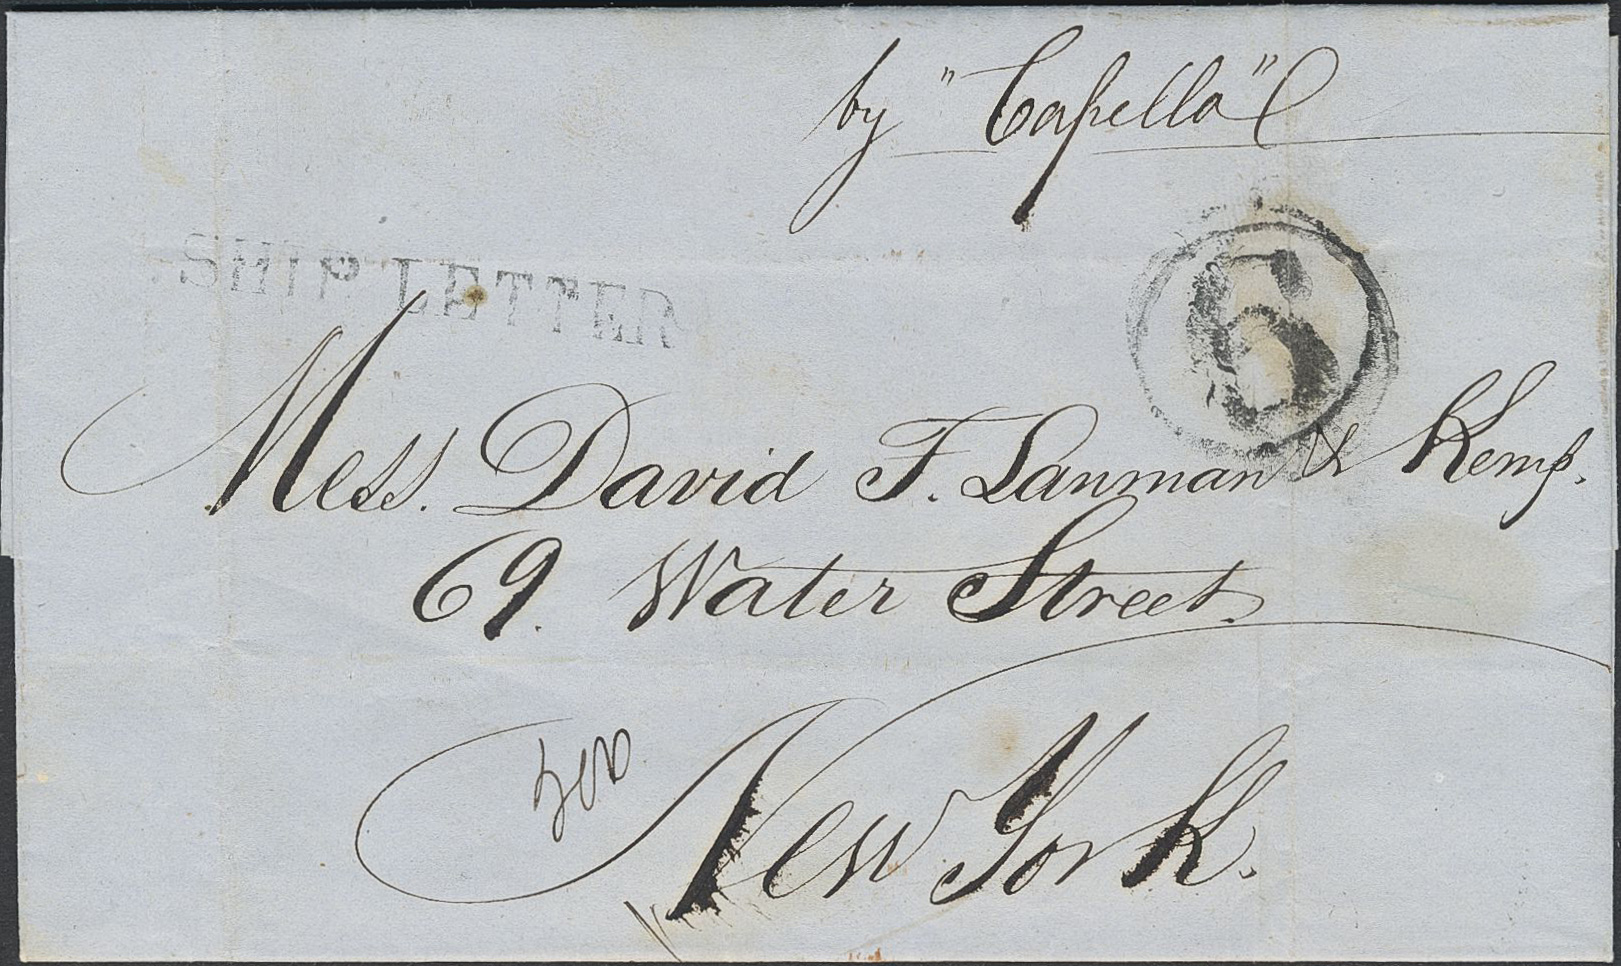 by "Capella"
SHIP LETTER
6
Mess. David T. Lanman & Kemp.
69. Water Street.
New York.